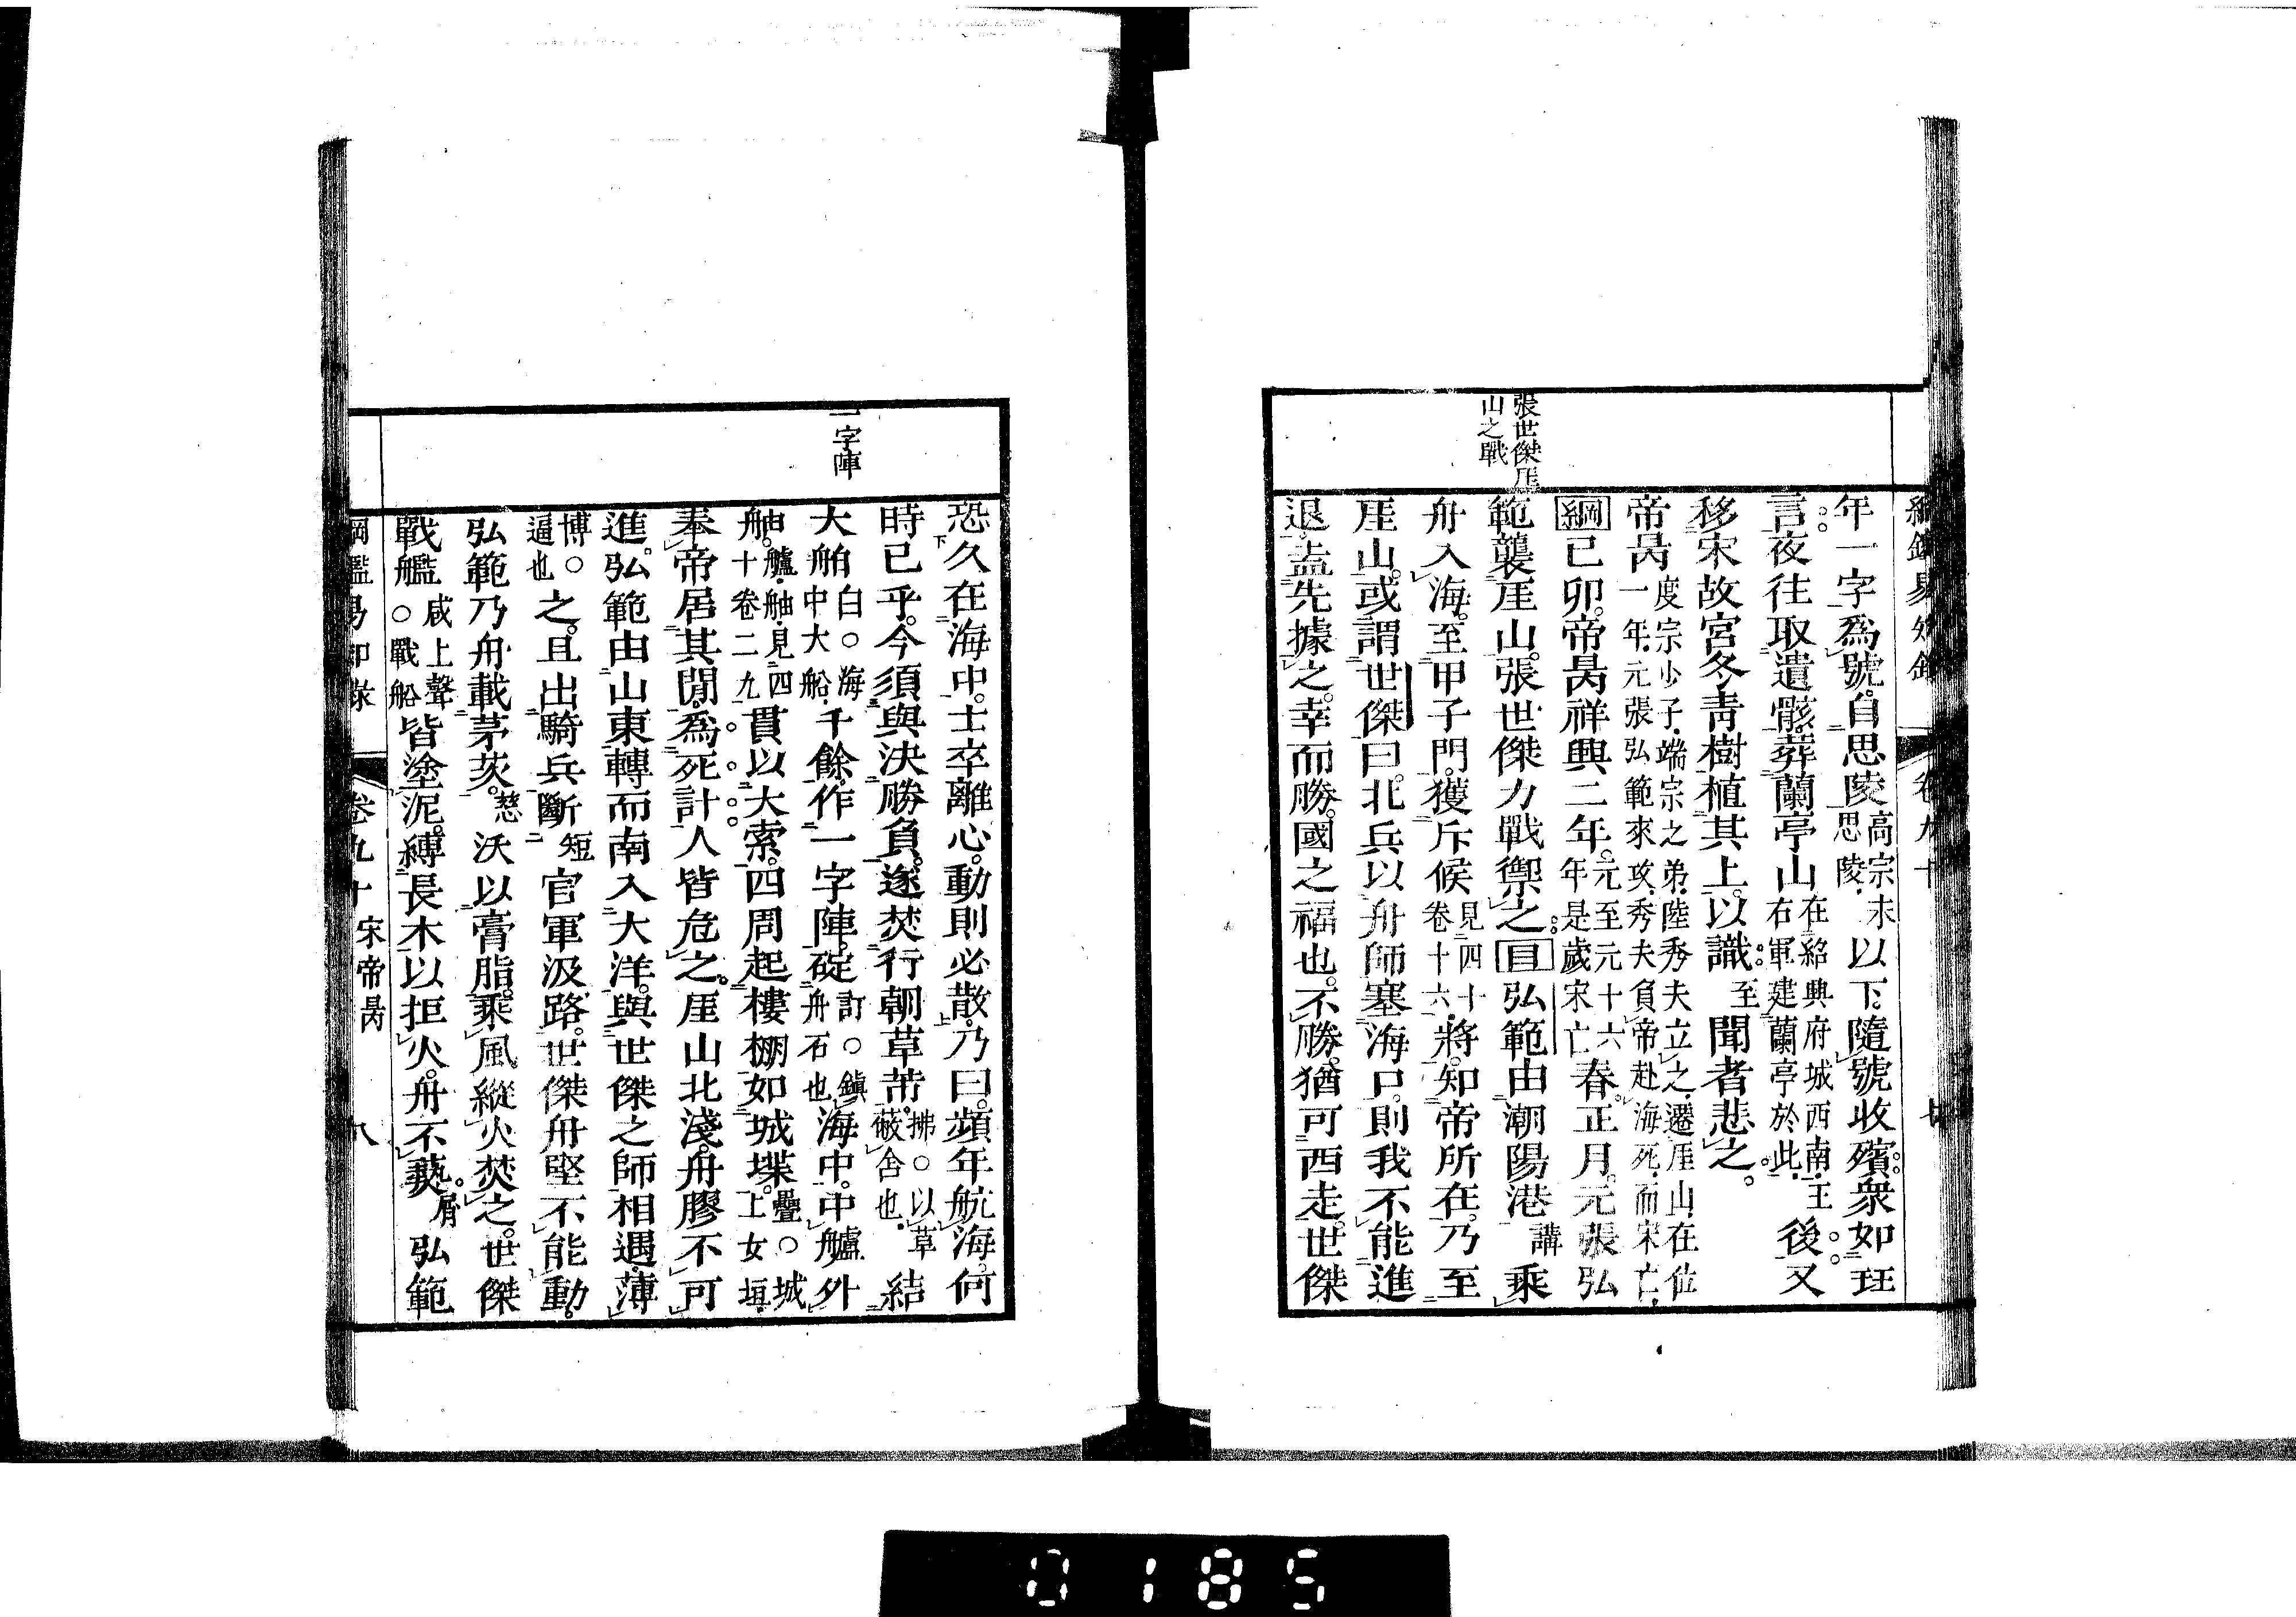 張世傑厓
山之戰
年一字爲號自思陵高宗思陵未以下隨號收殯衆如珏
言夜往取遺骸葬蘭亭山在紹興府城西南王右軍建蘭亭於此後又
移宋故宮冬靑樹植其上以識至聞者悲之
帝昺度宗少子端宗之弟陸秀夫立之遷厓山在位一年元張弘範來攻秀夫負帝赴海死而宋亡
綱己卯帝昺祥興二年元至元十六年是歲宋亡春正月元張弘
範襲厓山張世傑力戰禦之目弘範由潮陽港講乘
舟入海至甲子門獲斥候見四十卷十六將知帝所在乃至
厓山或謂世傑曰北兵以舟師塞海口則我不能進
退盍先據之幸而勝國之福也不勝猶可西走世傑
一字陣
恐久在海中士卒離心動則必散乃曰頻年航海何
時已乎今須與決勝負遂焚行朝草芾拂○以草蔽舍也結
大舶白○海中大船千餘作一字陣碇訂○鎭舟石也海中中艫外
舳由艫舳見四十卷二九貫以大索四周起樓棚如城堞疊○城上女垣
奉帝居其閒爲死計人皆危之厓山北淺舟膠不可
進弘範由山東轉而南入大洋與世傑之師相遇薄
博○逼也之且出騎兵斷短官軍汲路世傑舟堅不能動
弘範乃舟載茅茨慈沃以膏脂乘風縱火焚之世傑
戰艦咸上聲○戰船皆塗泥縛長木以拒火舟不爇弘範
卷九十 宋帝昺 八